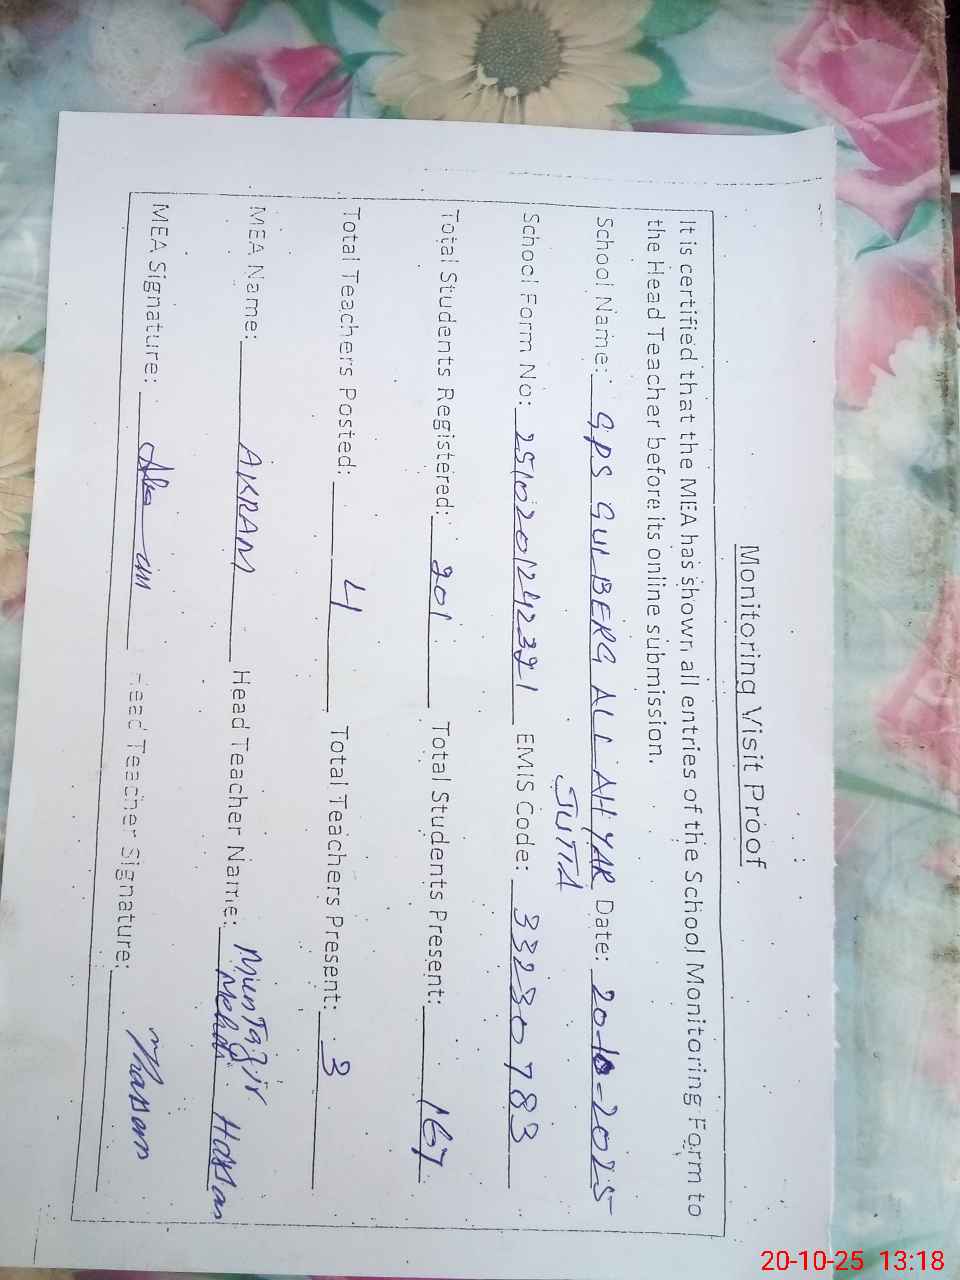 Monitoring Visit Proof
It is certified that the MEA has shown all entries of the School Monitoring Form to
the Head Teacher before its online submission.
School Name: GPS GULBERG ALLAHYAR Date: 20-10-2025
JUTTA
School Form No: EMIS Code: 33230783
Total Students Registered: 201 Total Students Present: 167
Total Teachers Posted: 4 Total Teachers Present: 3
MEA Name: AKRAM Head Teacher Name: Muntazir
Mehdi Hassan
MEA Signature: Head Teacher Signature: Mhassan
20-10-25 13:18